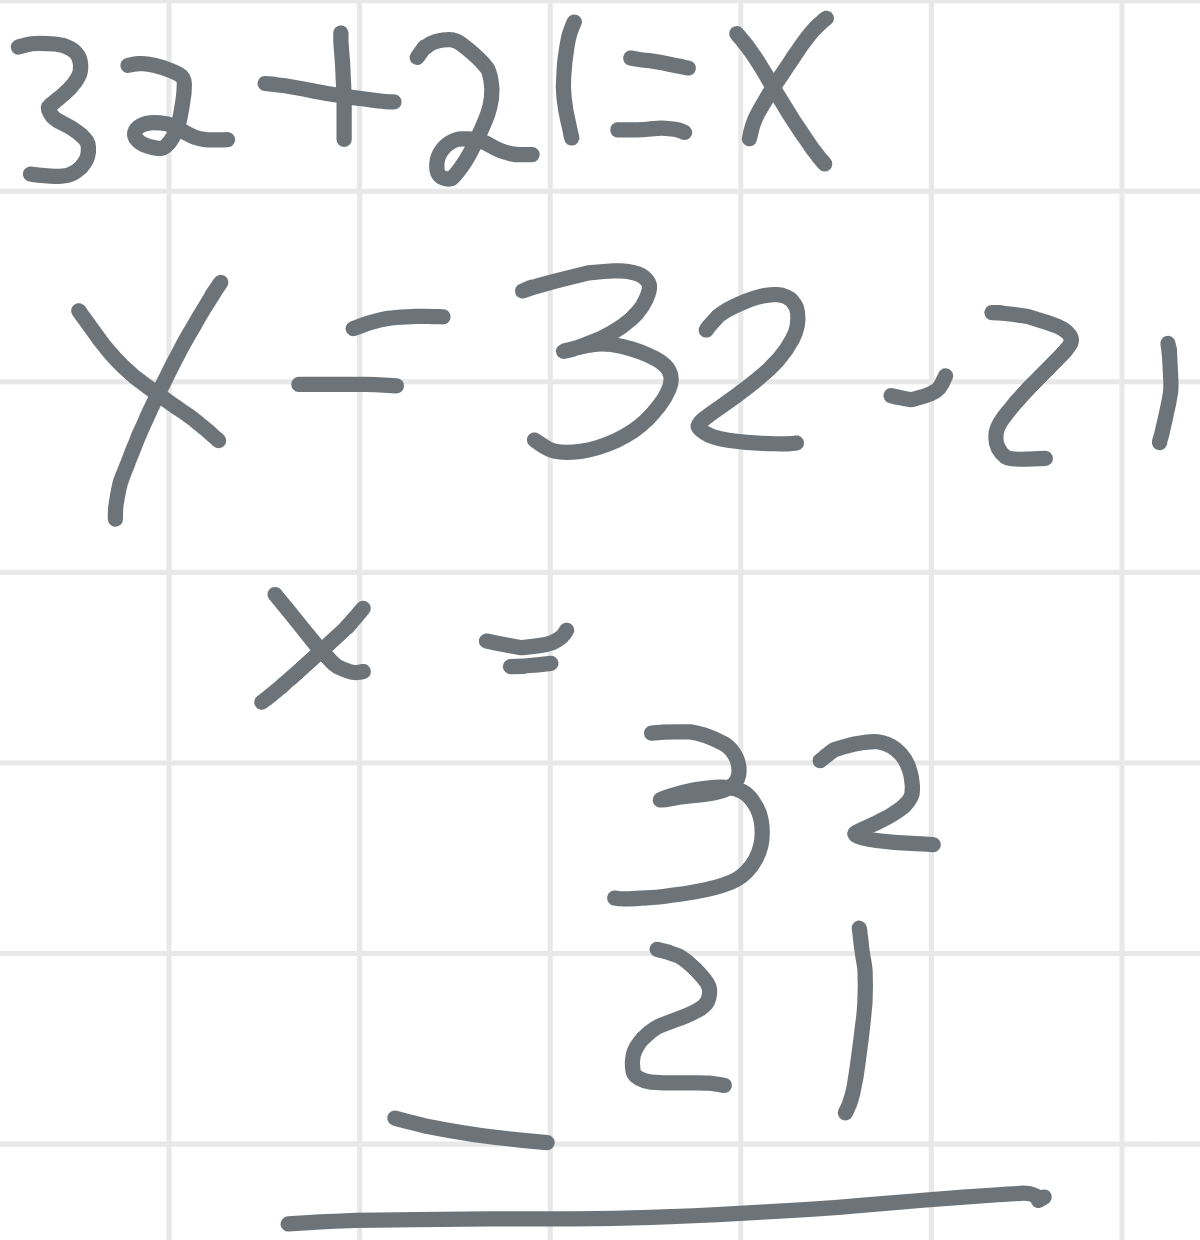 32+21=X
X=32-21
x=
32
21
-